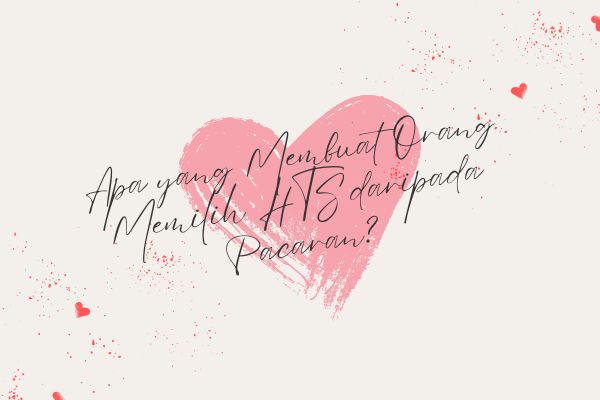 Apa yang Membuat Orang
Memilih HTS daripada
Pacaran?